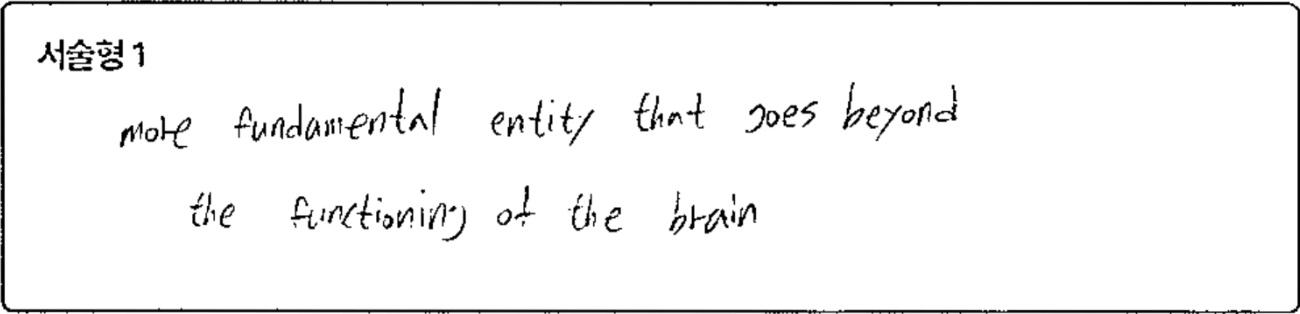 서술형 1
more fundamental entity that goes beyond
the functioning of the brain